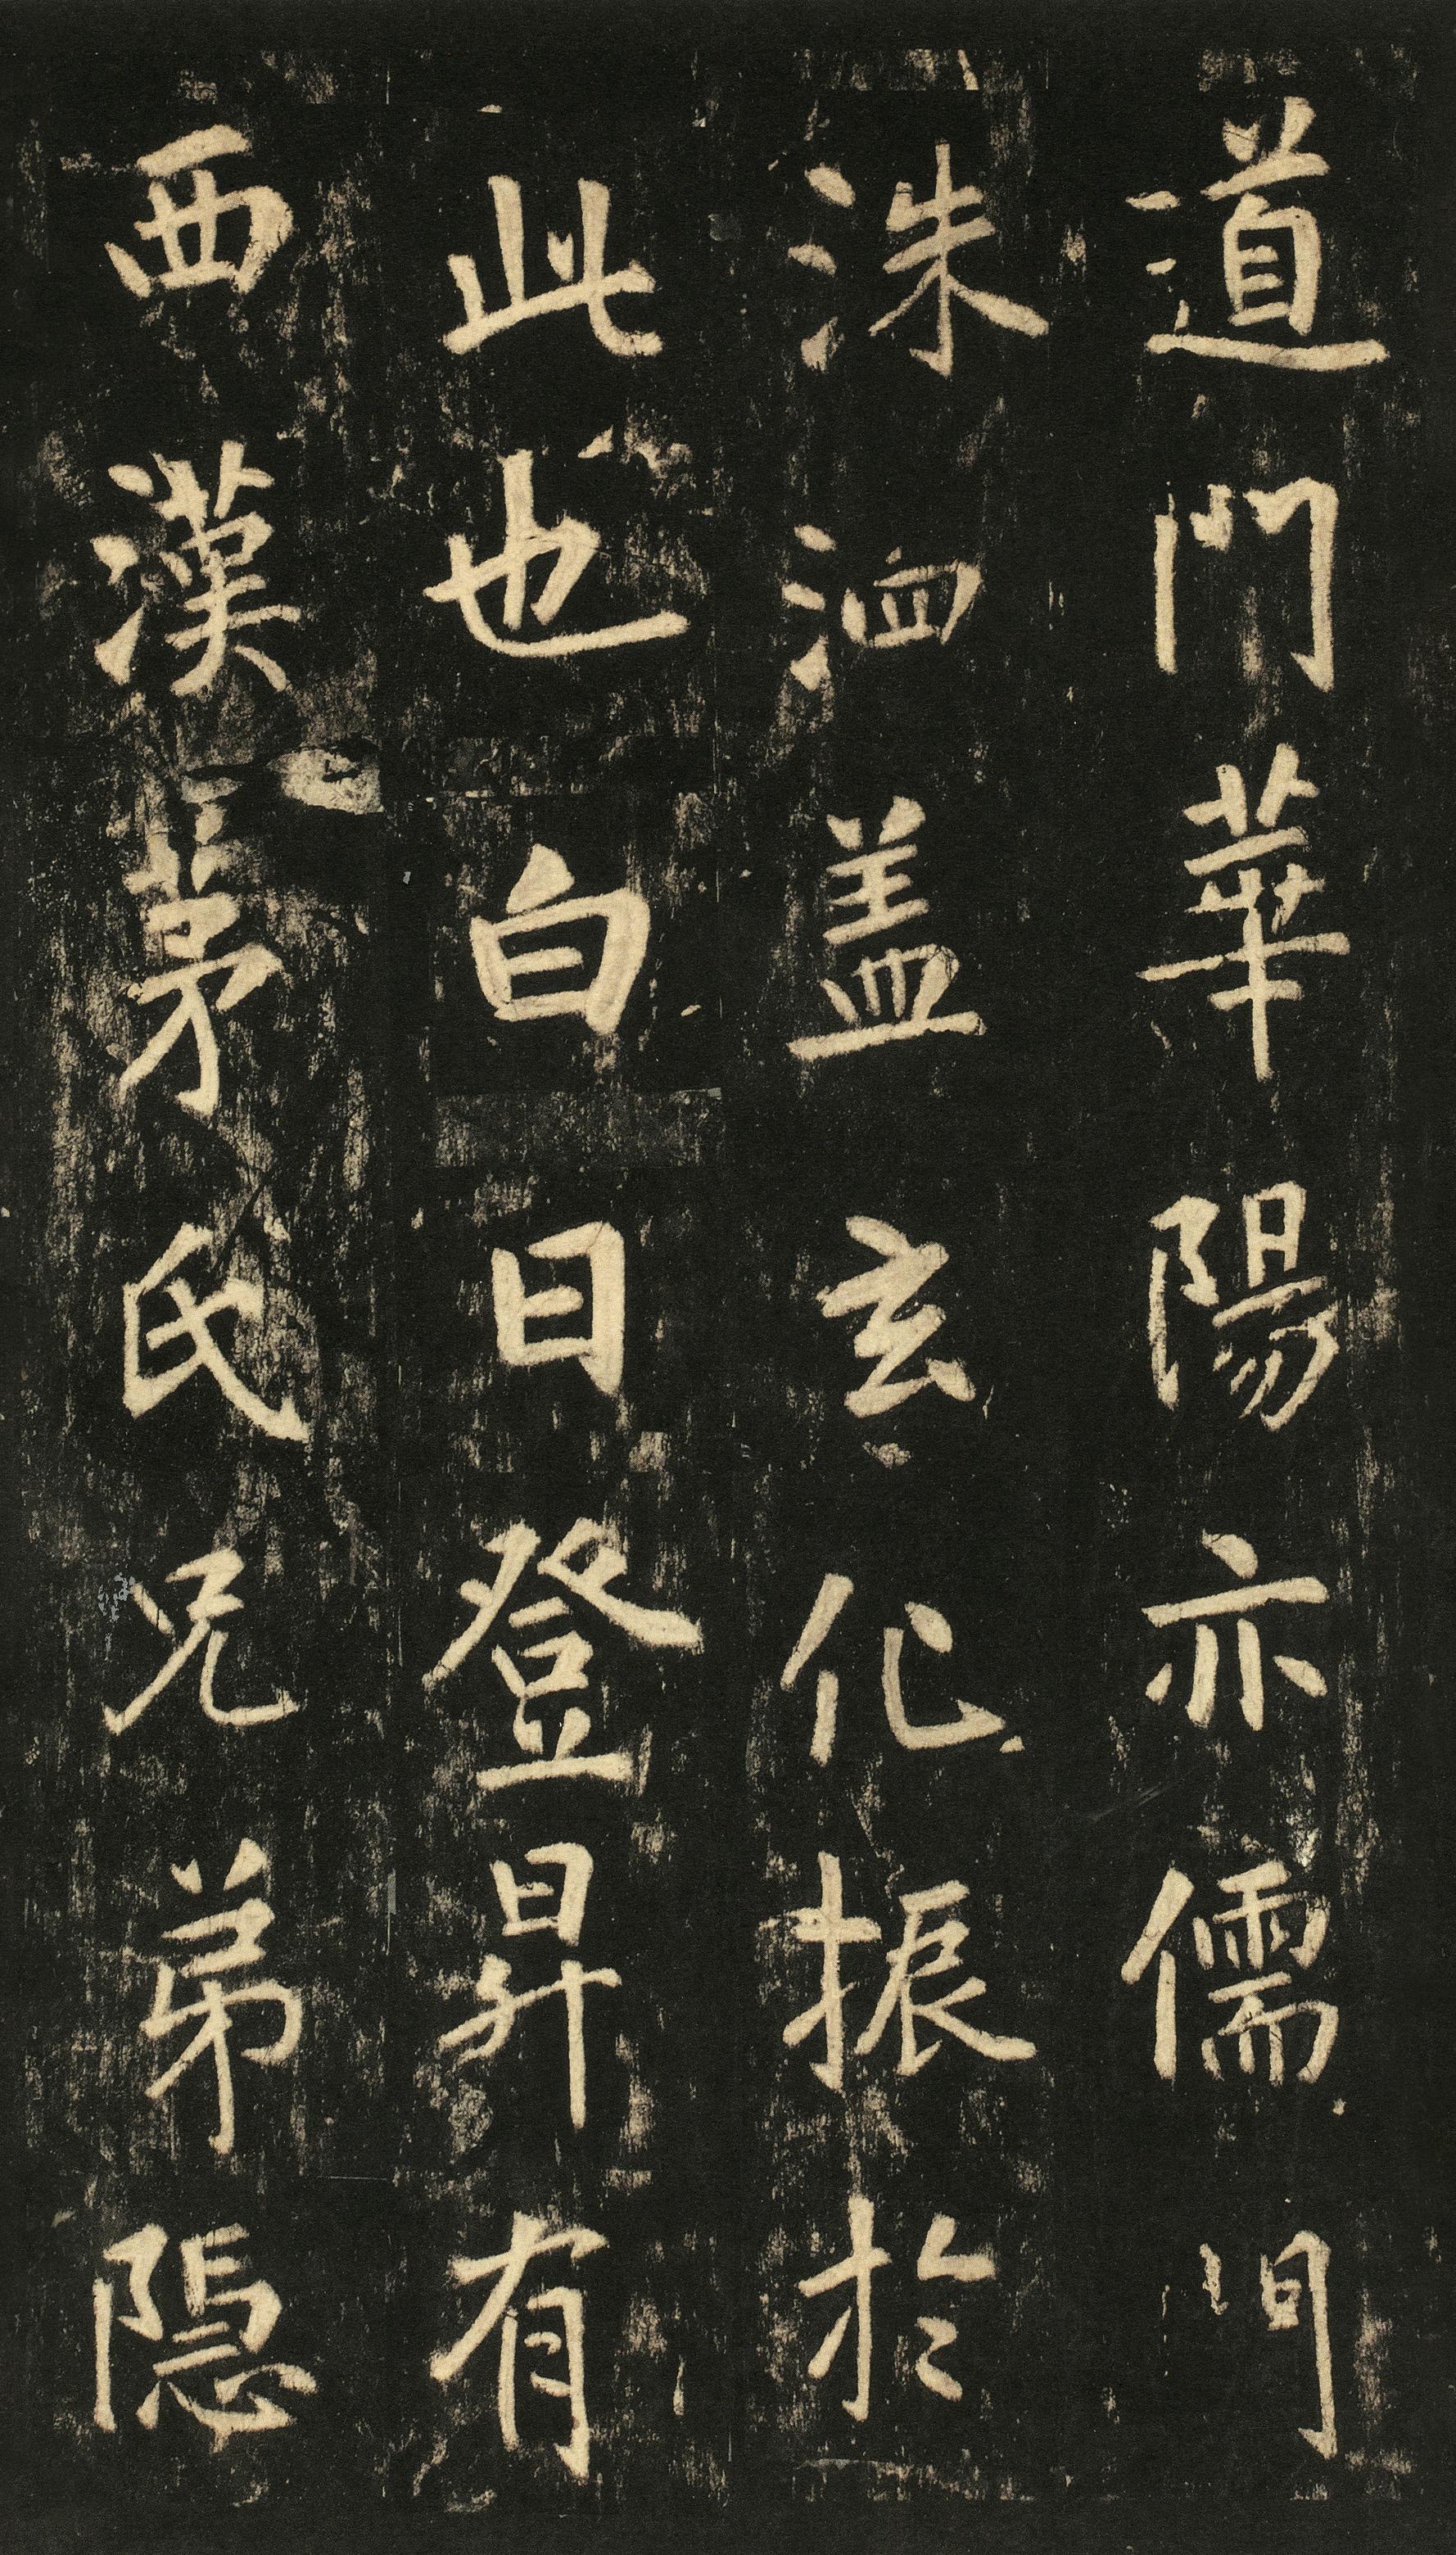 道門華陽亦儒門
洙泗盖玄化振於
此也白日登昇有
西漢茅氏兄弟隱